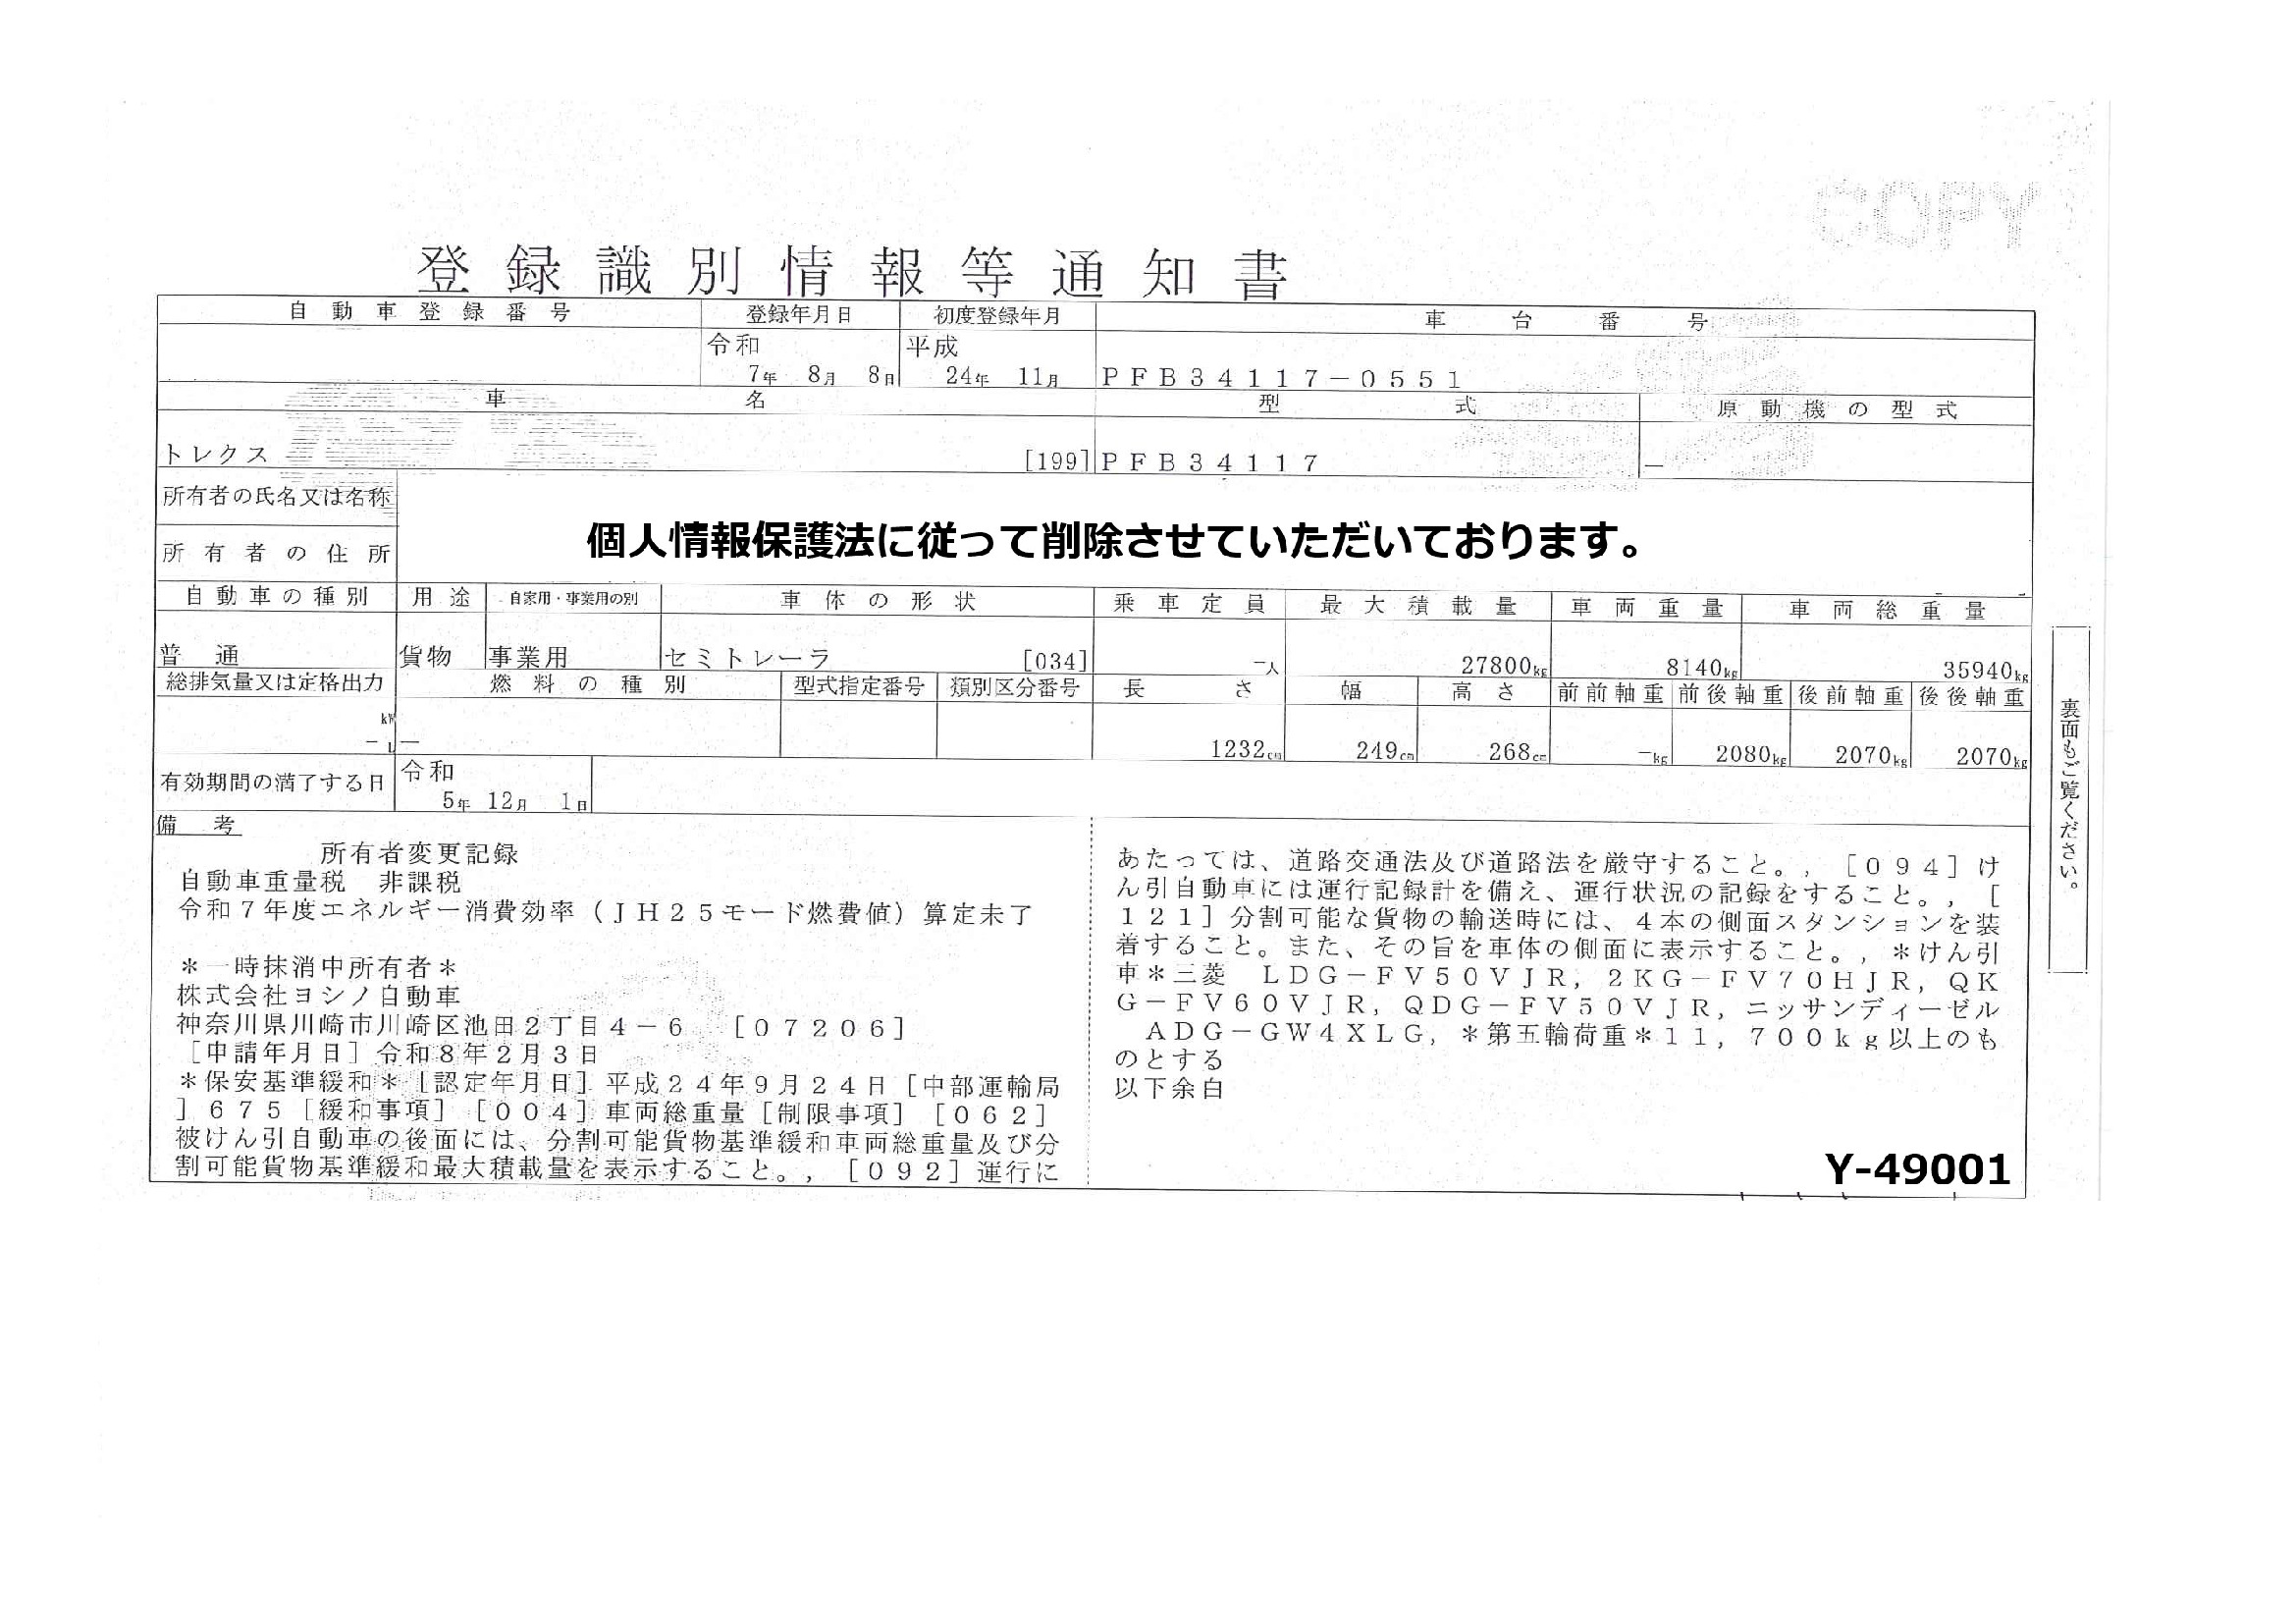 COPY
登録識別情報等通知書
自動車登録番号 登録年月日 初度登録年月 車台番号
令和 平成
7年 8月 8日 24年 11月 PFB34117-0551
車名 型式 原動機の型式
トレクス [199] PFB34117 -
所有者の氏名又は名称
個人情報保護法に従って削除させていただいております。
所有者の住所
自動車の種別 用途 自家用・事業用の別 車体の形状 乗車定員 最大積載量 車両重量 車両総重量
普通 貨物 事業用 セミトレーラ [034] -人 27800kg 8140kg 35940kg
総排気量又は定格出力 燃料の種別 型式指定番号 類別区分番号 長さ 幅 高さ 前前軸重 前後軸重 後前軸重 後後軸重
kW
- L - 1232cm 249cm 268cm -kg 2080kg 2070kg 2070kg
有効期間の満了する日 令和
5年 12月 1日
備考
所有者変更記録
自動車重量税 非課税
令和7年度エネルギー消費効率(JH25モード燃費値)算定未了
*一時抹消中所有者*
株式会社ヨシノ自動車
神奈川県川崎市川崎区池田2丁目4-6 [07206]
[申請年月日]令和8年2月3日
*保安基準緩和*[認定年月日]平成24年9月24日[中部運輸局
]675[緩和事項][004]車両総重量[制限事項][062]
被けん引自動車の後面には、分割可能貨物基準緩和車両総重量及び分
割可能貨物基準緩和最大積載量を表示すること。,[092]運行に
あたっては、道路交通法及び道路法を厳守すること。,[094]け
ん引自動車には運行記録計を備え、運行状況の記録をすること。,[
121]分割可能な貨物の輸送時には、4本の側面スタンションを装
着すること。また、その旨を車体の側面に表示すること。,*けん引
車*三菱 LDG-FV50VJR,2KG-FV70HJR,QK
G-FV60VJR,QDG-FV50VJR,ニッサンディーゼル
ADG-GW4XLG,*第五輪荷重*11,700kg以上のも
のとする
以下余白
Y-49001
裏面もご覧ください。